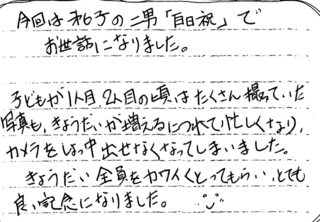 今回は和子の二男「百日祝」で
お世話になりました。
子どもが1人目、2人目の頃はたくさん撮っていた
写真も、きょうだいが増えるにつれて忙しくなり、
カメラをしょっ中出せなくなってしまいました。
きょうだい全員をカワイくとってもらい、とても
良い記念になりました。